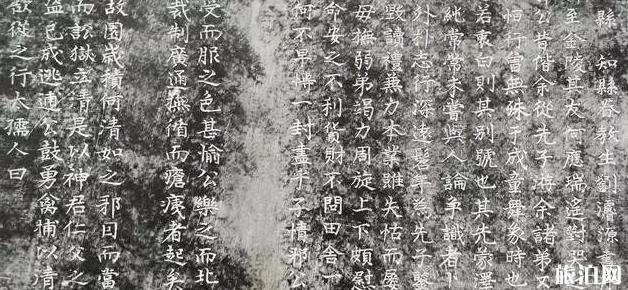 縣 知縣眷教生劉濬源書
至金陵其友何應瑞遙對哭
公昔偕余從先子游余諸弟又
恒行嘗無殊于成童舞象時也
若衷白則其別號也其先蒙澤
純常常未嘗與人論爭識者卜
外朴志行深逺髫年為先子鑒
毀讀禮兼力本業雖失怙而屡
毋撫弱弟竭力周旋上下頗慰
命安之不利貨財不問田舍一
何不早博一封盡于子情邪公
受而服之色甚愉公樂之而北
裁制廣通循而瘡痍者起矣
故園歲積何清如之邪曰而當
而訟獄立清是以神君仁父之
盜已成逃逋公鼓勇禽捕以清
欲從之行太孺人曰
旅泊网